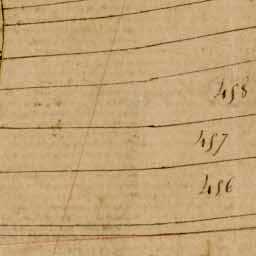 458
457
456